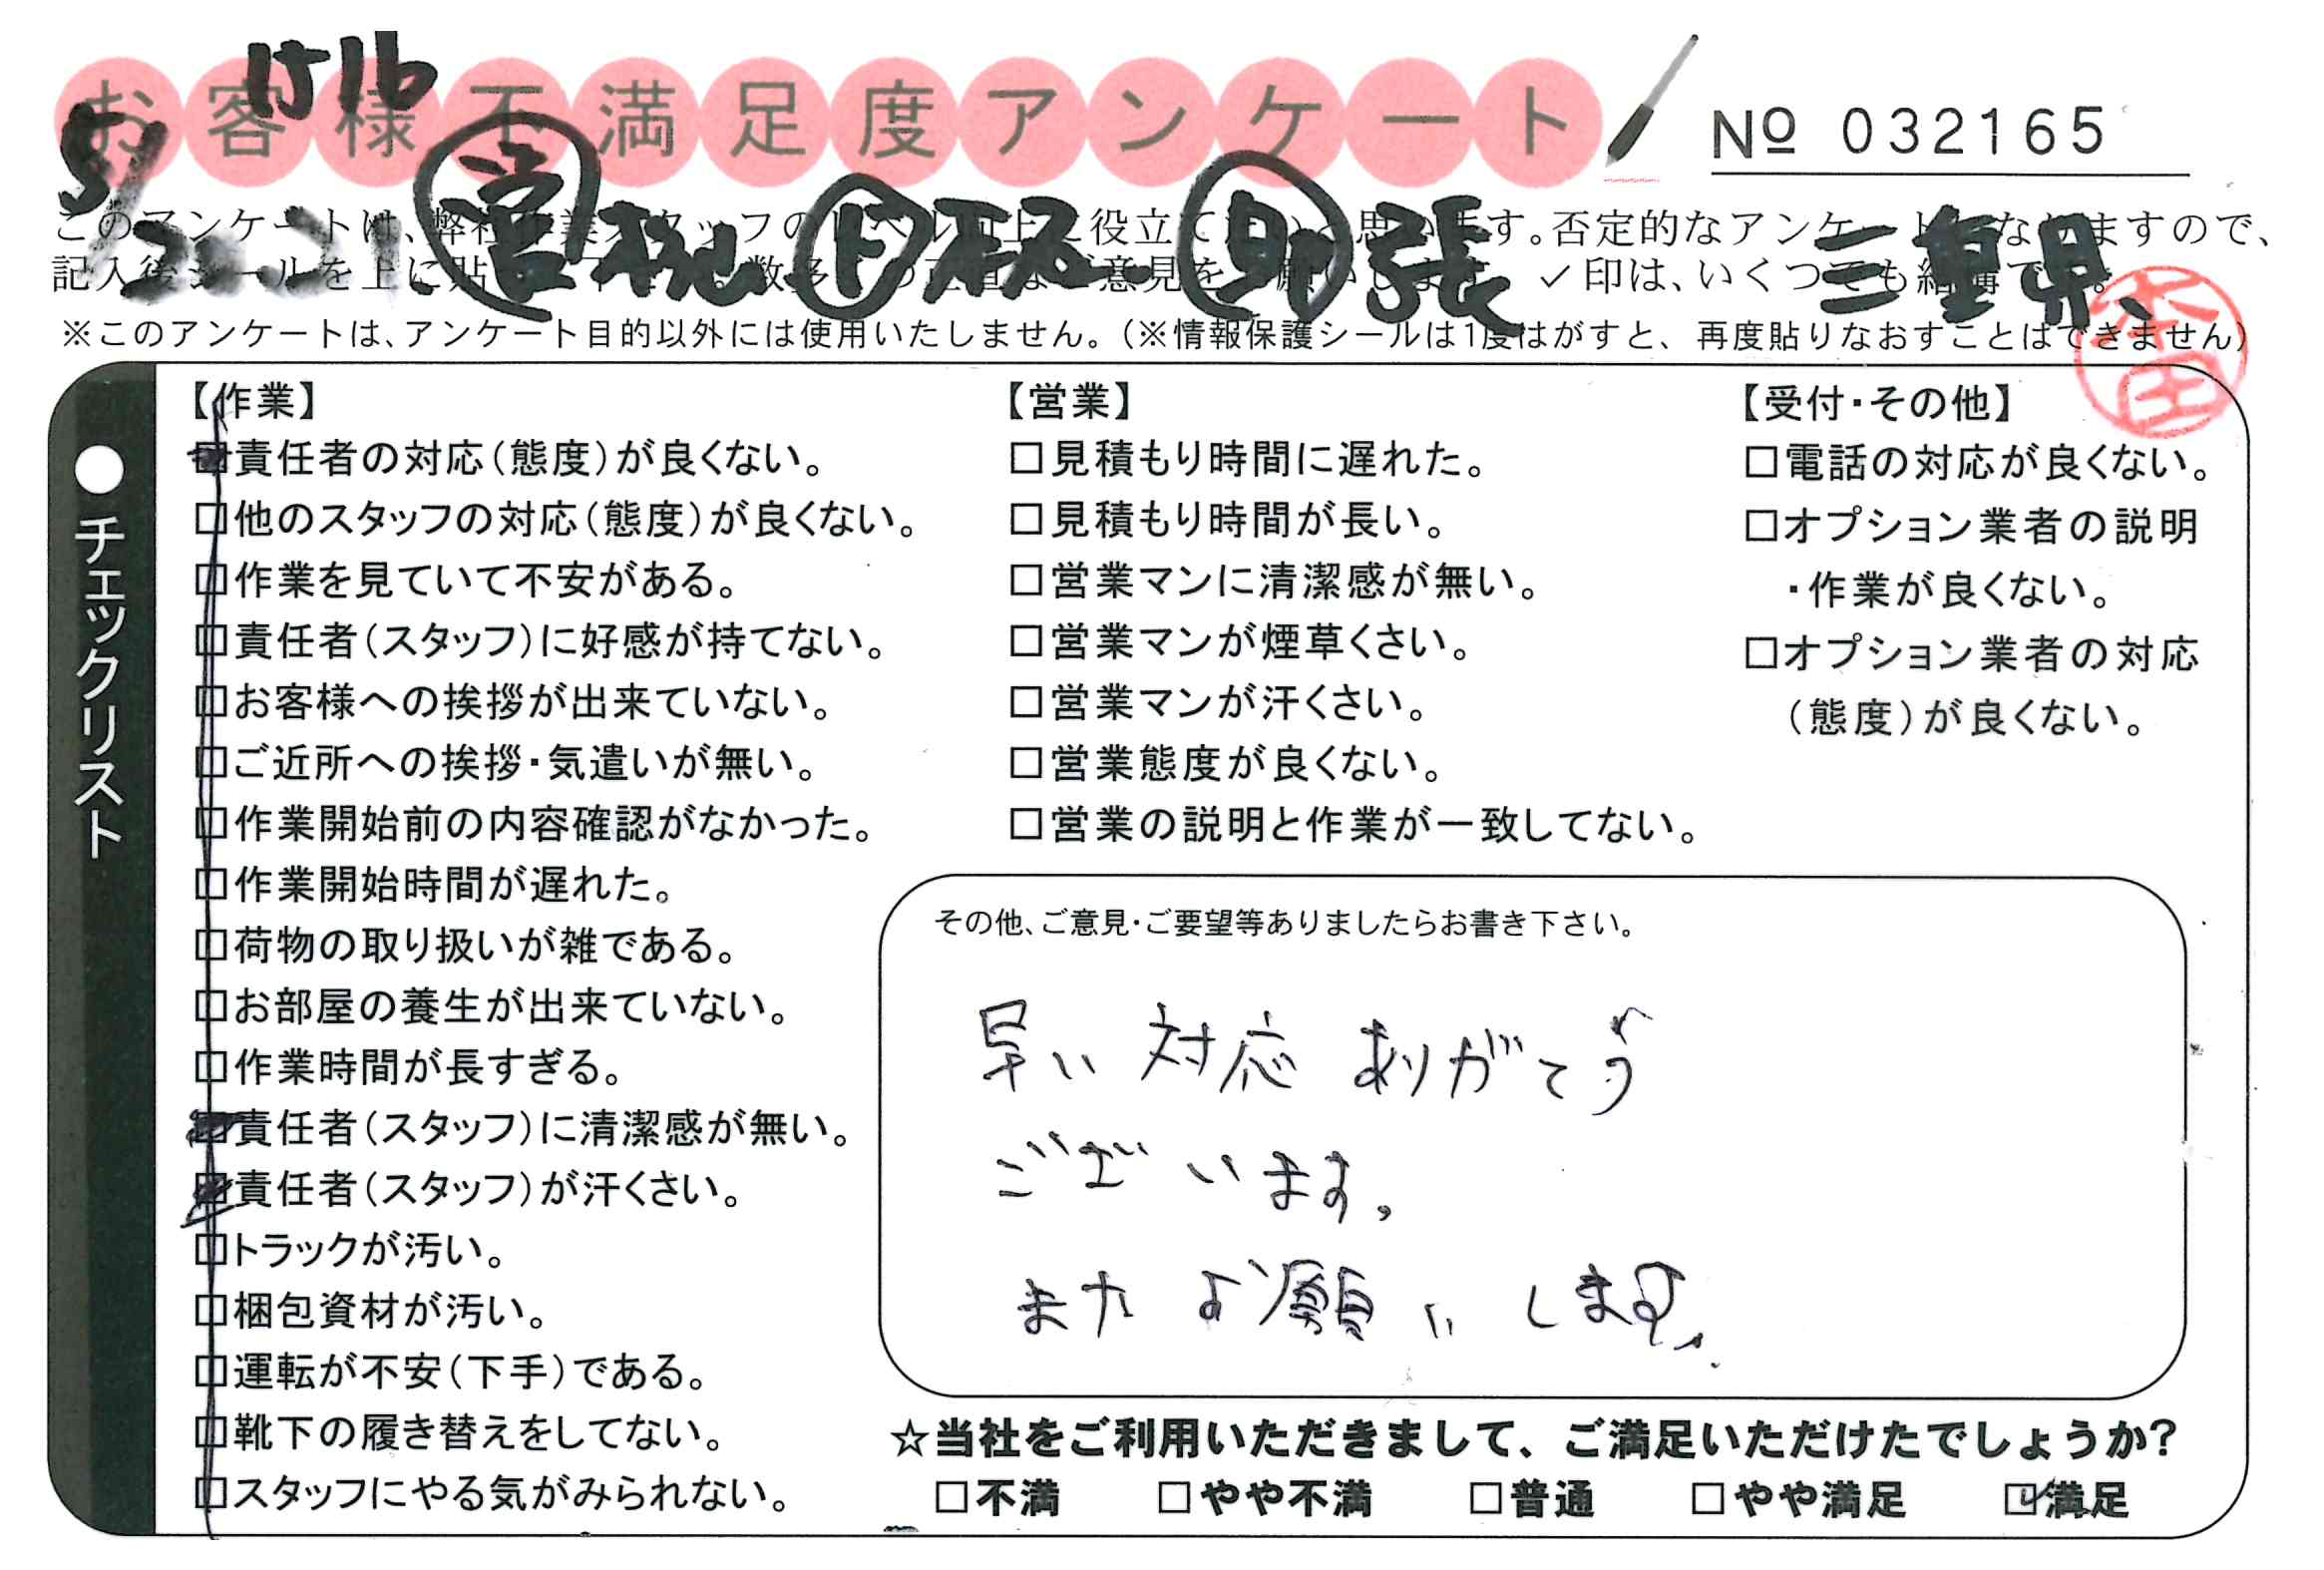 お客様不満足度アンケート
No 032165
5/
2021
三重県
本田
※このアンケートは、アンケート目的以外には使用いたしません。(※情報保護シールは1度はがすと、再度貼りなおすことはできません)
●チェックリスト
【作業】
□責任者の対応(態度)が良くない。
□他のスタッフの対応(態度)が良くない。
□作業を見ていて不安がある。
□責任者(スタッフ)に好感が持てない。
□お客様への挨拶が出来ていない。
□ご近所への挨拶・気遣いが無い。
□作業開始前の内容確認がなかった。
□作業開始時間が遅れた。
□荷物の取り扱いが雑である。
□お部屋の養生が出来ていない。
□作業時間が長すぎる。
□責任者(スタッフ)に清潔感が無い。
□責任者(スタッフ)が汗くさい。
□トラックが汚い。
□梱包資材が汚い。
□運転が不安(下手)である。
□靴下の履き替えをしてない。
□スタッフにやる気がみられない。
【営業】
□見積もり時間に遅れた。
□見積もり時間が長い。
□営業マンに清潔感が無い。
□営業マンが煙草くさい。
□営業マンが汗くさい。
□営業態度が良くない。
□営業の説明と作業が一致してない。
【受付・その他】
□電話の対応が良くない。
□オプション業者の説明
・作業が良くない。
□オプション業者の対応
(態度)が良くない。
その他、ご意見・ご要望等ありましたらお書き下さい。
早い対応ありがてう
ございます。
またお願いします。
☆当社をご利用いただきまして、ご満足いただけたでしょうか?
□不満 □やや不満 □普通 □やや満足 ☑満足